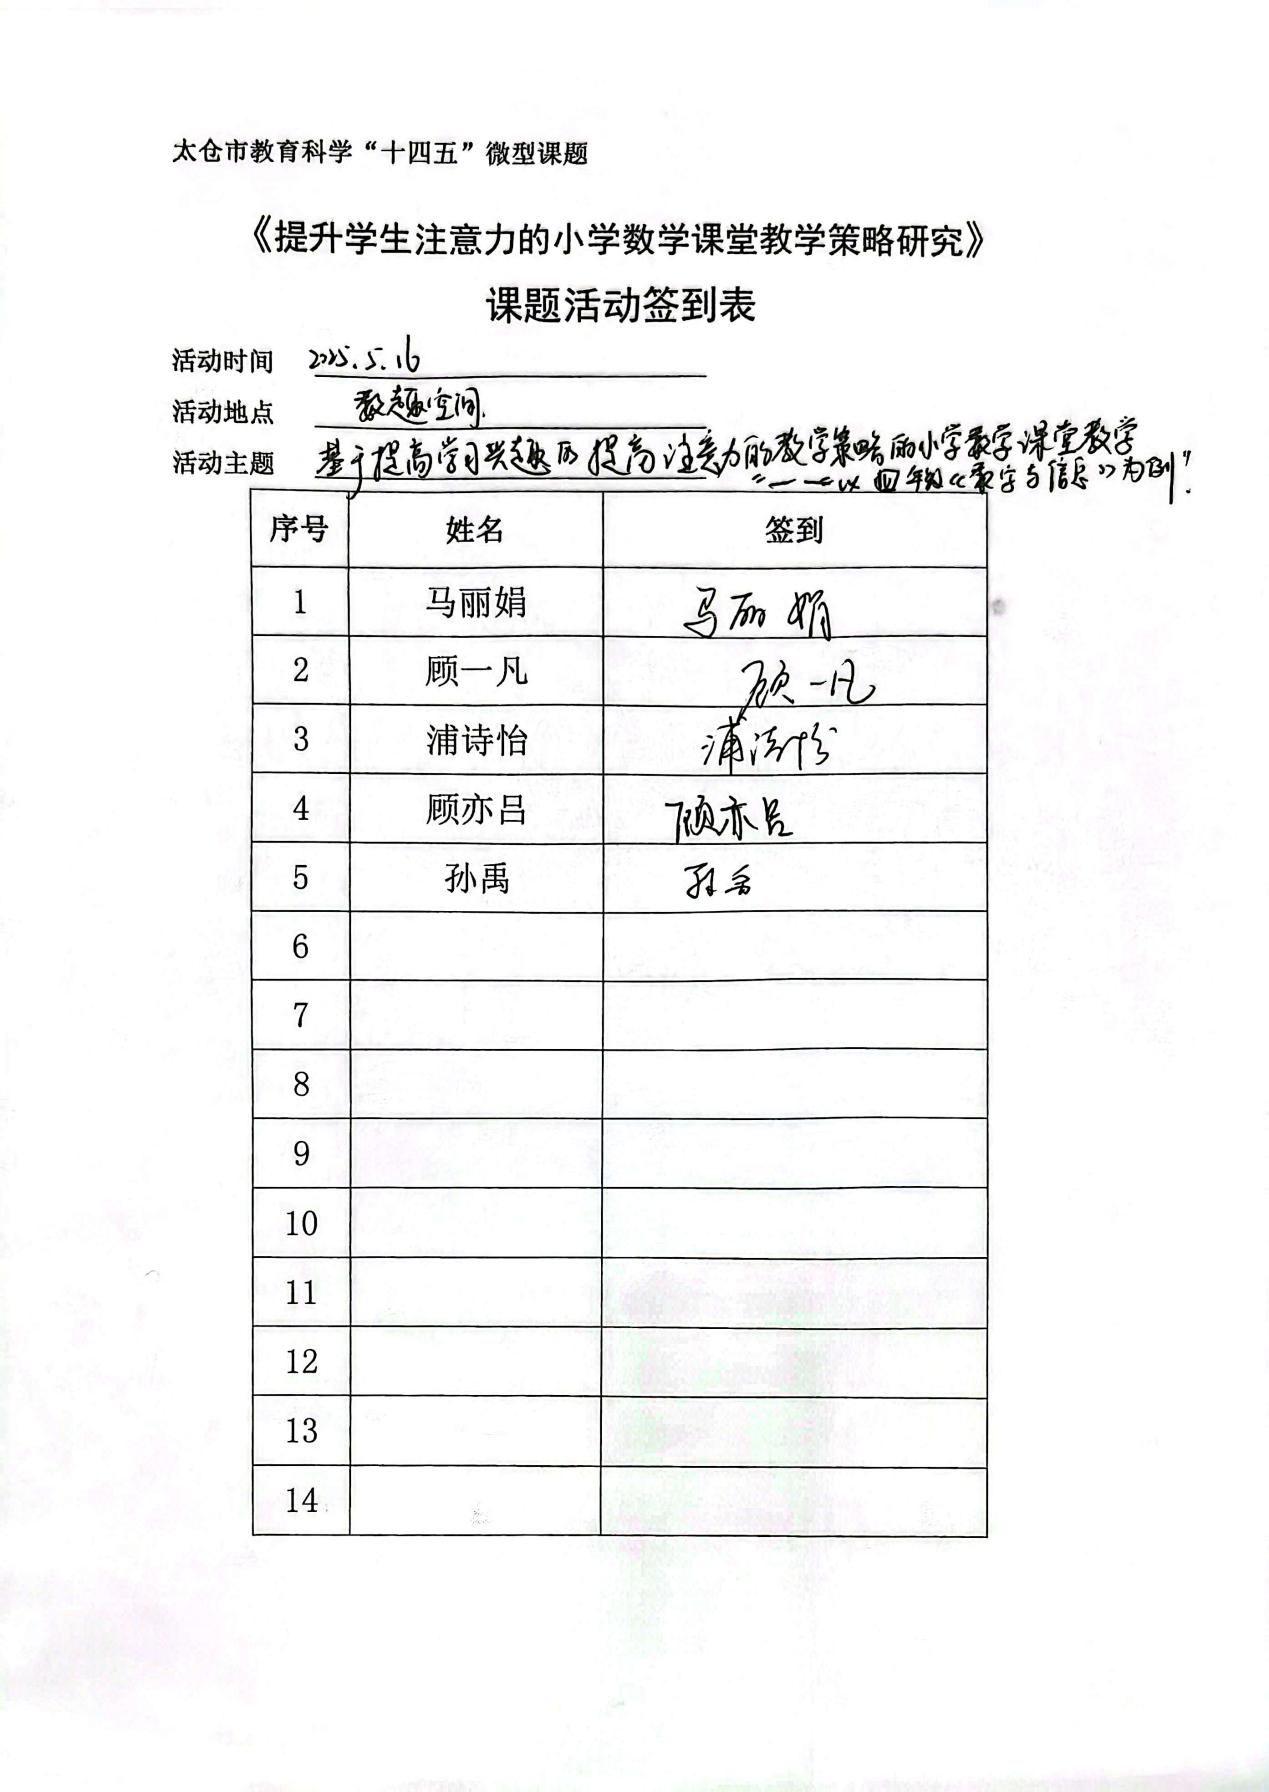 太仓市教育科学“十四五”微型课题
《提升学生注意力的小学数学课堂教学策略研究》
课题活动签到表
活动时间 2025.5.16
活动地点 数趣空间
活动主题 基于提高学习兴趣的提高注意力的教学策略的小学数学课堂教学
——以四年级《数字与信息》为例”
序号 姓名 签到
1 马丽娟 马丽娟
2 顾一凡 顾一凡
3 浦诗怡 浦诗怡
4 顾亦吕 顾亦吕
5 孙禹 孙禹
6
7
8
9
10
11
12
13
14